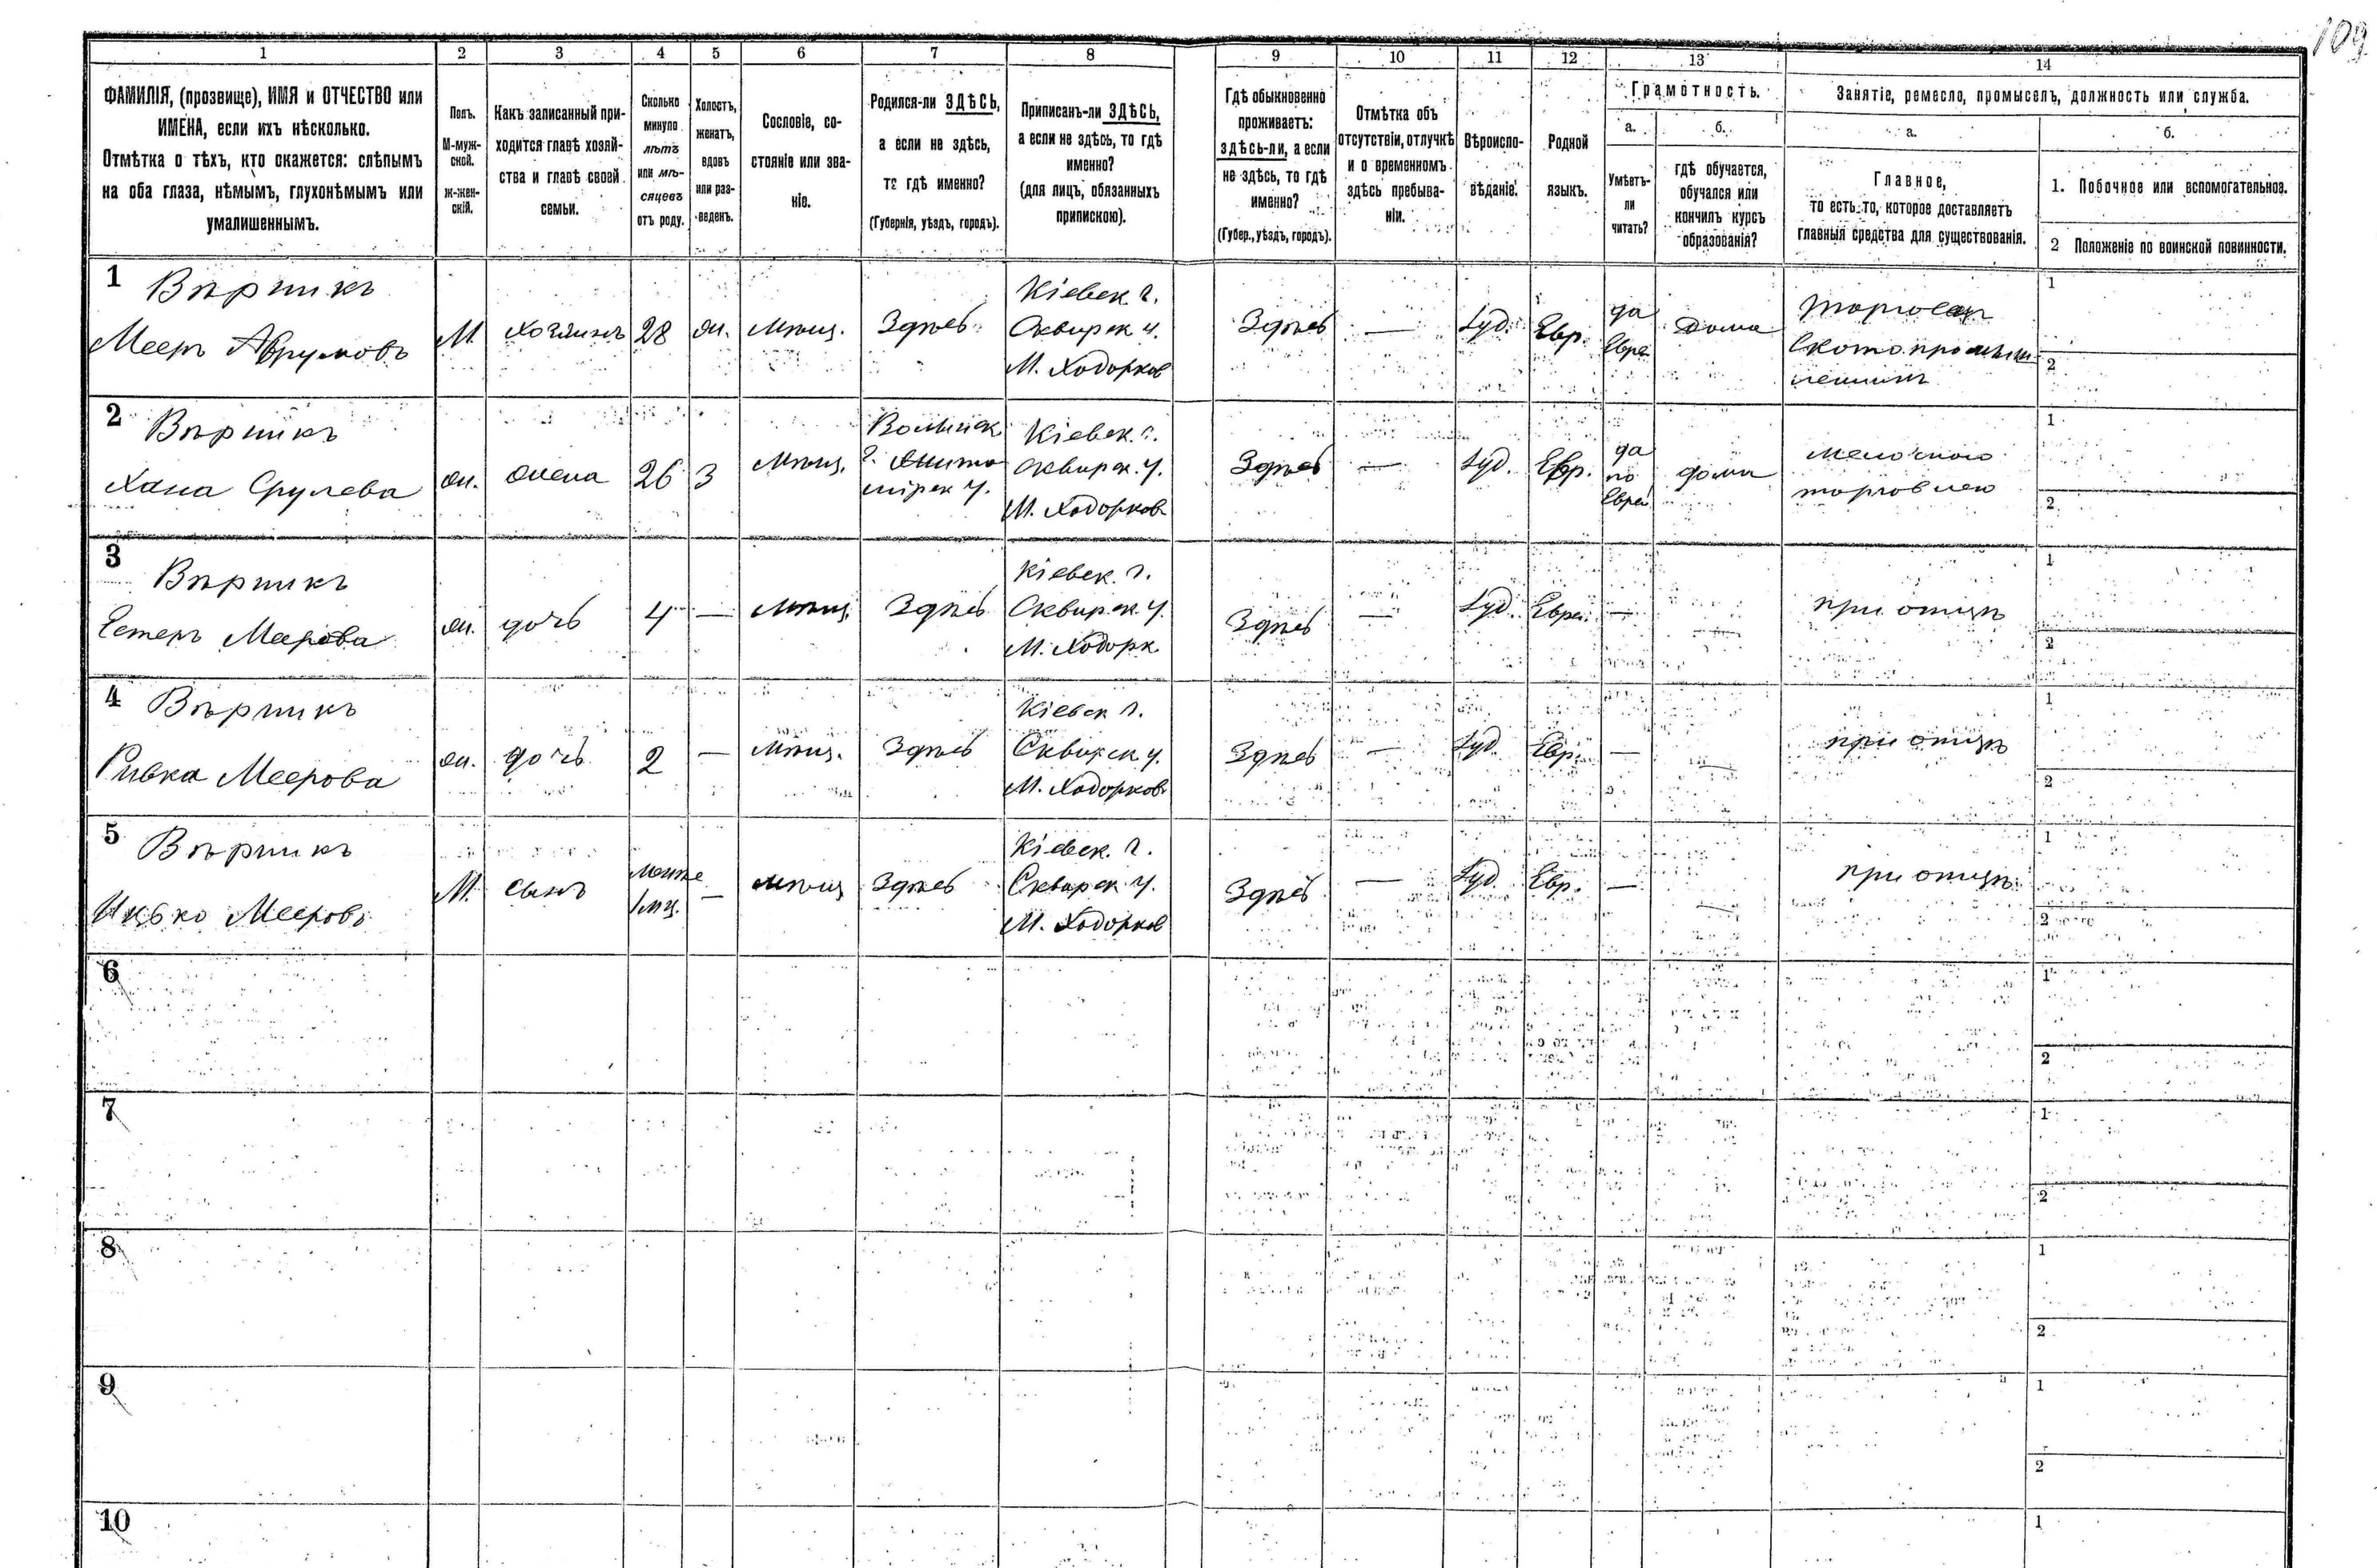 109
1 2 3 4 5 6 7 8 9 10 11 12 13 14
ФАМИЛІЯ, (прозвище), ИМЯ и ОТЧЕСТВО или
ИМЕНА, если ихъ нѣсколько.
Отмѣтка о тѣхъ, кто окажется: слѣпымъ
на оба глаза, нѣмымъ, глухонѣмымъ или
умалишеннымъ.
Полъ.
М-муж-
ской.
ж-жен-
скій.
Какъ записанный при-
ходится главѣ хозяй-
ства и главѣ своей
семьи.
Сколько
минуло
лѣтъ
или мѣ-
сяцевъ
отъ роду.
Холостъ,
женатъ,
вдовъ
или раз-
веденъ.
Сословіе, со-
стояніе или зва-
ніе.
Родился-ли ЗДѢСЬ,
а если не здѣсь,
то гдѣ именно?
(Губернія, уѣздъ, городъ).
Приписанъ-ли ЗДѢСЬ,
а если не здѣсь, то гдѣ
именно?
(для лицъ, обязанныхъ
припискою).
Гдѣ обыкновенно
проживаетъ:
здѣсь-ли, а если
не здѣсь, то гдѣ
именно?
(Губер., уѣздъ, городъ).
Отмѣтка объ
отсутствіи, отлучкѣ
и о временномъ
здѣсь пребыва-
ніи.
Вѣроиспо-
вѣданіе.
Родной
языкъ.
Грамотность.
а.
Умѣетъ-
ли
читать?
б.
гдѣ обучается,
обучался или
кончилъ курсъ
образованія?
Занятіе, ремесло, промыселъ, должность или служба.
а.
Главное,
то есть то, которое доставляетъ
главныя средства для существованія.
б.
1. Побочное или вспомогательное.
2 Положеніе по воинской повинности.
1 Вѣрникъ
Мееръ Аврумовъ
М.
хозяинъ
28
ж.
мѣщ.
Здѣсь
Кіевск г.
Сквирск у.
М. Ходорков
Здѣсь
—
Іуд.
Евр.
да
Евре
дома
Торговец
1
2
2 Вѣрникъ
Хана Срулева
ж.
жена
26
З
мѣщ.
Волынск
г. Жито
мірск у.
Кіевск. г.
Сквирск. у.
М. Ходорков
Здѣсь
—
Іуд.
Евр.
да
по
Евреі
дома
мелочною
торговлею
1
2
3 Вѣрникъ
Естеръ Меерова
ж.
дочь
4
—
мѣщ.
Здѣсь
Кіевск. г.
Сквирск. у.
М. Ходорк.
Здѣсь
—
Іуд.
Евре.
—
—
при отцѣ
1
2
4 Вѣрникъ
Ривка Меерова
ж.
дочь
2
—
мѣщ.
Здѣсь
Кіевск г.
Сквирск у.
М. Ходорков
Здѣсь
—
Іуд.
Евр.
—
—
при отцѣ
1
2
5 Вѣрникъ
Ицько Мееровъ
М.
сынъ
менѣе
1 мц.
—
мѣщ
Здѣсь
Кіевск. г.
Сквирск у.
М. Ходорков
Здѣсь
—
Іуд.
Евр.
—
—
при отцѣ
1
2
6
1
2
7
1
2
8
1
2
9
1
2
10
1